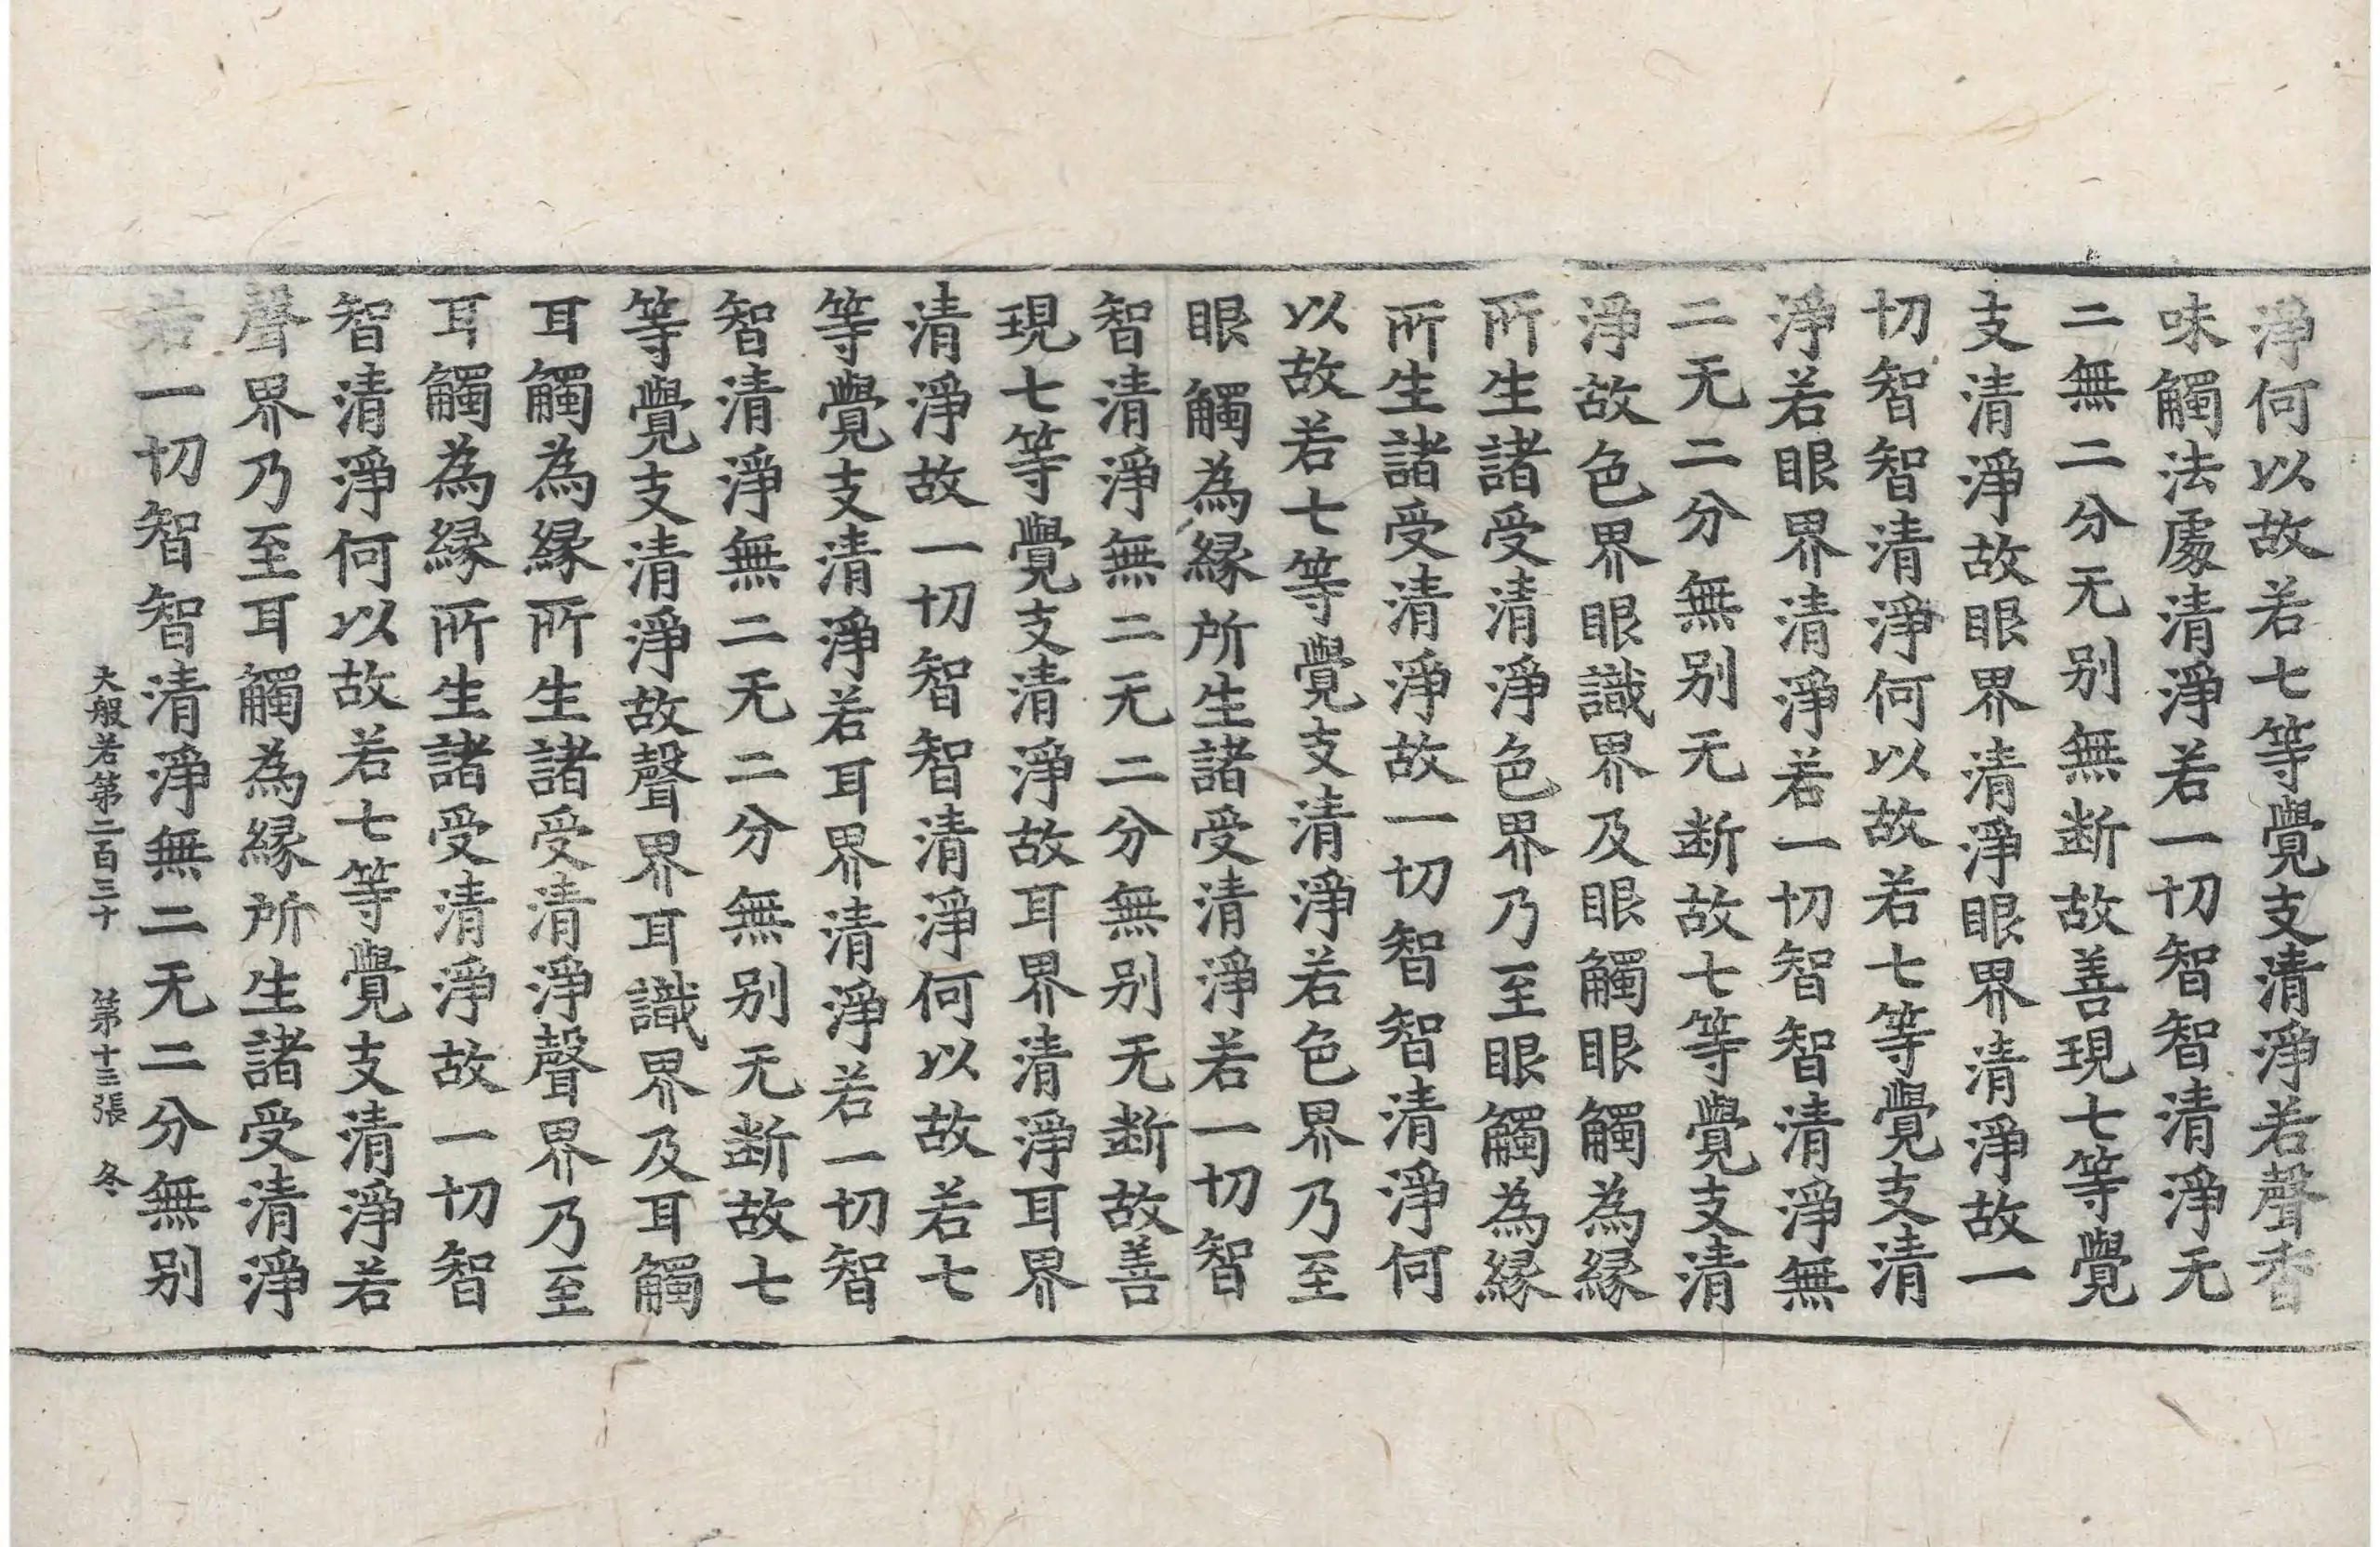 淨何以故若七等覺支清淨若聲香
味觸法處清淨若一切智智清淨无
二無二分无别無断故善現七等覺
支清淨故眼界清淨眼界清淨故一
切智智清淨何以故若七等覺支清
淨若眼界清淨若一切智智清淨無
二无二分無别无断故七等覺支清
淨故色界眼識界及眼觸眼觸為縁
所生諸受清淨色界乃至眼觸為縁
所生諸受清淨故一切智智清淨何
以故若七等覺支清淨若色界乃至
眼觸為縁所生諸受清淨若一切智
智清淨無二无二分無别无断故善
現七等覺支清淨故耳界清淨耳界
清淨故一切智智清淨何以故若七
等覺支清淨若耳界清淨若一切智
智清淨無二无二分無别无断故七
等覺支清淨故聲界耳識界及耳觸
耳觸為縁所生諸受清淨聲界乃至
耳觸為縁所生諸受清淨故一切智
智清淨何以故若七等覺支清淨若
聲界乃至耳觸為縁所生諸受清淨
若一切智智清淨無二无二分無别
大般若第二百三十 第十三張 冬